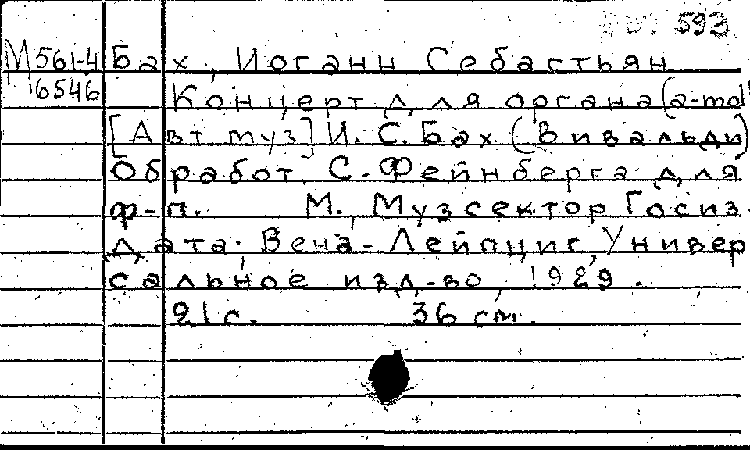 593
М561-4 Бах, Иоганн Себастьян
6546 Концерт для органа (a-mol
[Авт муз] И. С. Бах (Вивальди)
Обработ. С. Фейнберга для
ф-п. М., Музсектор Госиз
дата; Вена-Лейпциг, Универ
сальное изд-во, 1929.
21 с. 36 см.